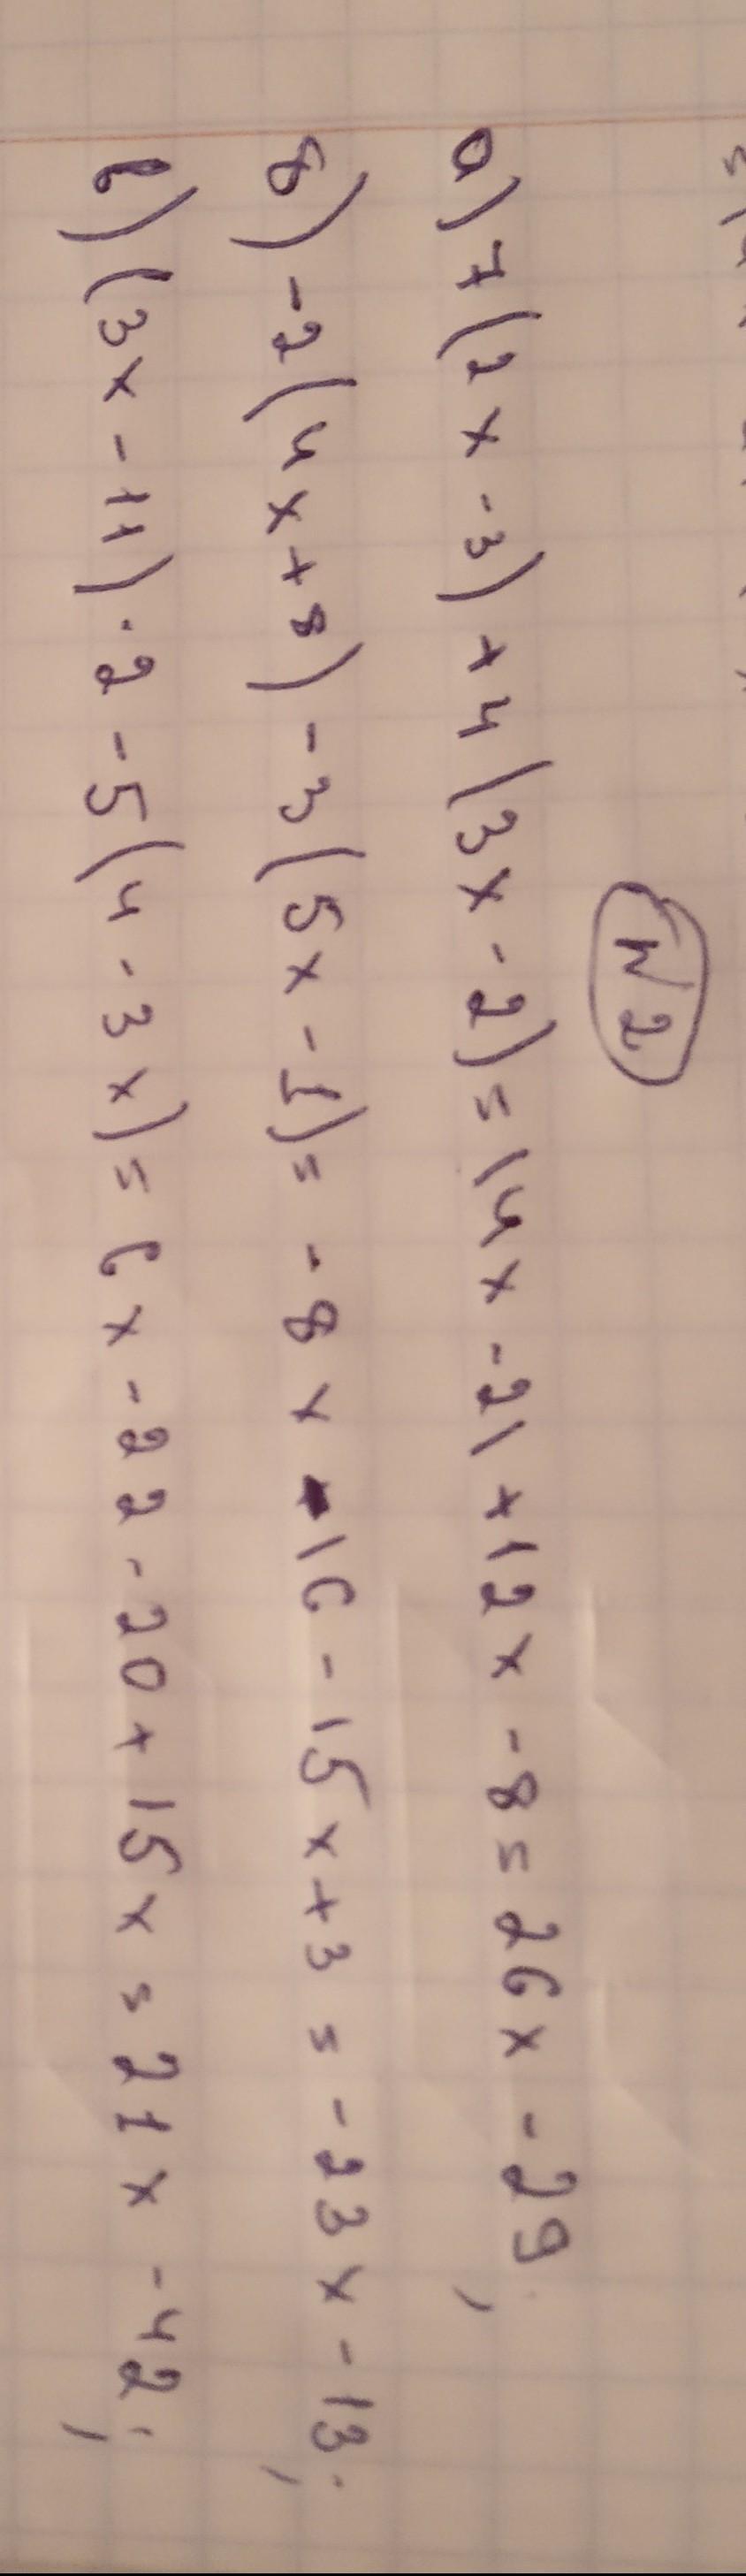 N 2
а) 7(2x - 3) + 4(3x - 2) = 14x - 21 + 12x - 8 = 26x - 29;
б) -2(4x + 8) - 3(5x - 1) = -8x - 16 - 15x + 3 = -23x - 13;
в) (3x - 11) · 2 - 5(4 - 3x) = 6x - 22 - 20 + 15x = 21x - 42;